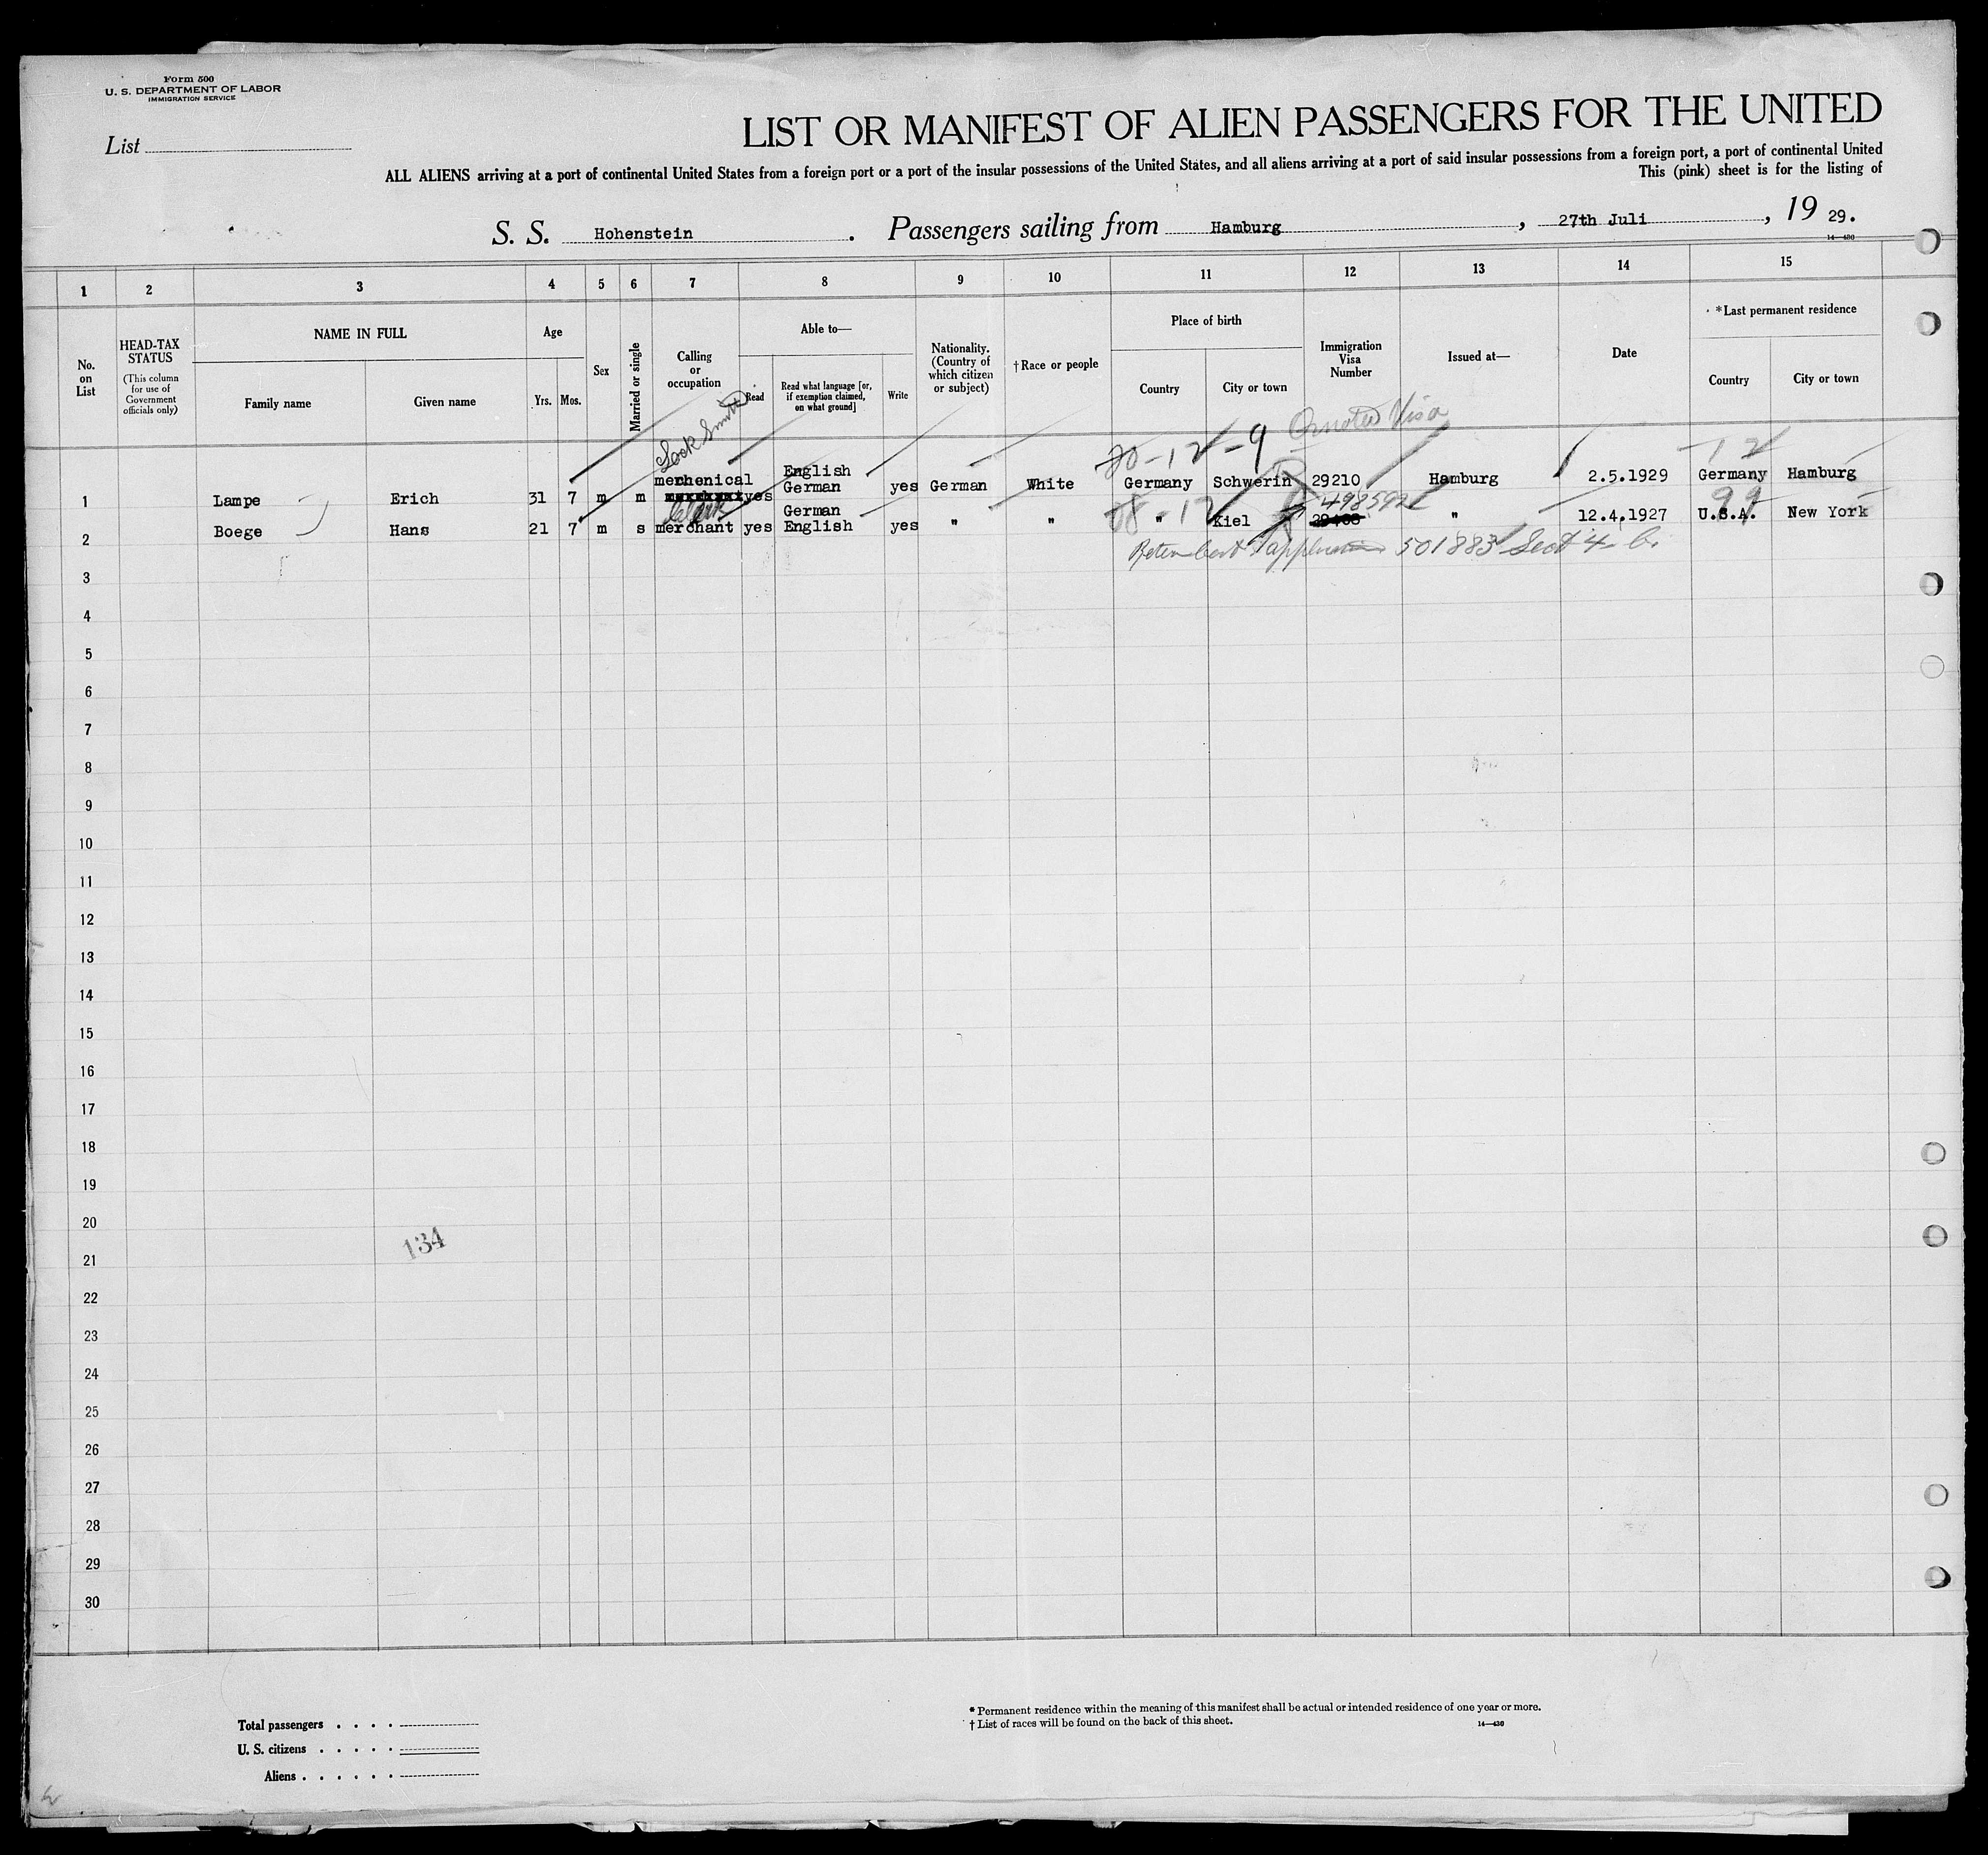 Form 500
U. S. DEPARTMENT OF LABOR
IMMIGRATION SERVICE
List
LIST OR MANIFEST OF ALIEN PASSENGERS FOR THE UNITED
ALL ALIENS arriving at a port of continental United States from a foreign port or a port of the insular possessions of the United States, and all aliens arriving at a port of said insular possessions from a foreign port, a port of continental United
This (pink) sheet is for the listing of
S. S. Hohenstein . Passengers sailing from Hamburg , 27th Juli , 19 29.
14—430
1 2 3 4 5 6 7 8 9 10 11 12 13 14 15
No. on List
HEAD-TAX STATUS
(This column for use of Government officials only)
NAME IN FULL
Family name
Given name
Age
Yrs. Mos.
Sex
Married or single
Calling or occupation
Able to—
Read
Read what language [or, if exemption claimed, on what ground]
Write
Nationality. (Country of which citizen or subject)
†Race or people
Place of birth
Country
City or town
Immigration Visa Number
Issued at—
Date
*Last permanent residence
Country
City or town
Lock Smith
20-12-9
Visa
12
1 Lampe Erich 31 7 m m mechenical yes English German yes German White Germany Schwerin 29210 Hamburg 2.5.1929 Germany Hamburg
Clerk
08-12
498592
99
2 Boege Hans 21 7 m s merchant yes German English yes " " " Kiel " 12.4.1927 U.S.A. New York
501883 Sect 4-b.
3
4
5
6
7
8
9
10
11
12
13
14
15
16
17
18
19
20
134
21
22
23
24
25
26
27
28
29
30
Total passengers
U. S. citizens
Aliens
* Permanent residence within the meaning of this manifest shall be actual or intended residence of one year or more.
† List of races will be found on the back of this sheet.
14—430